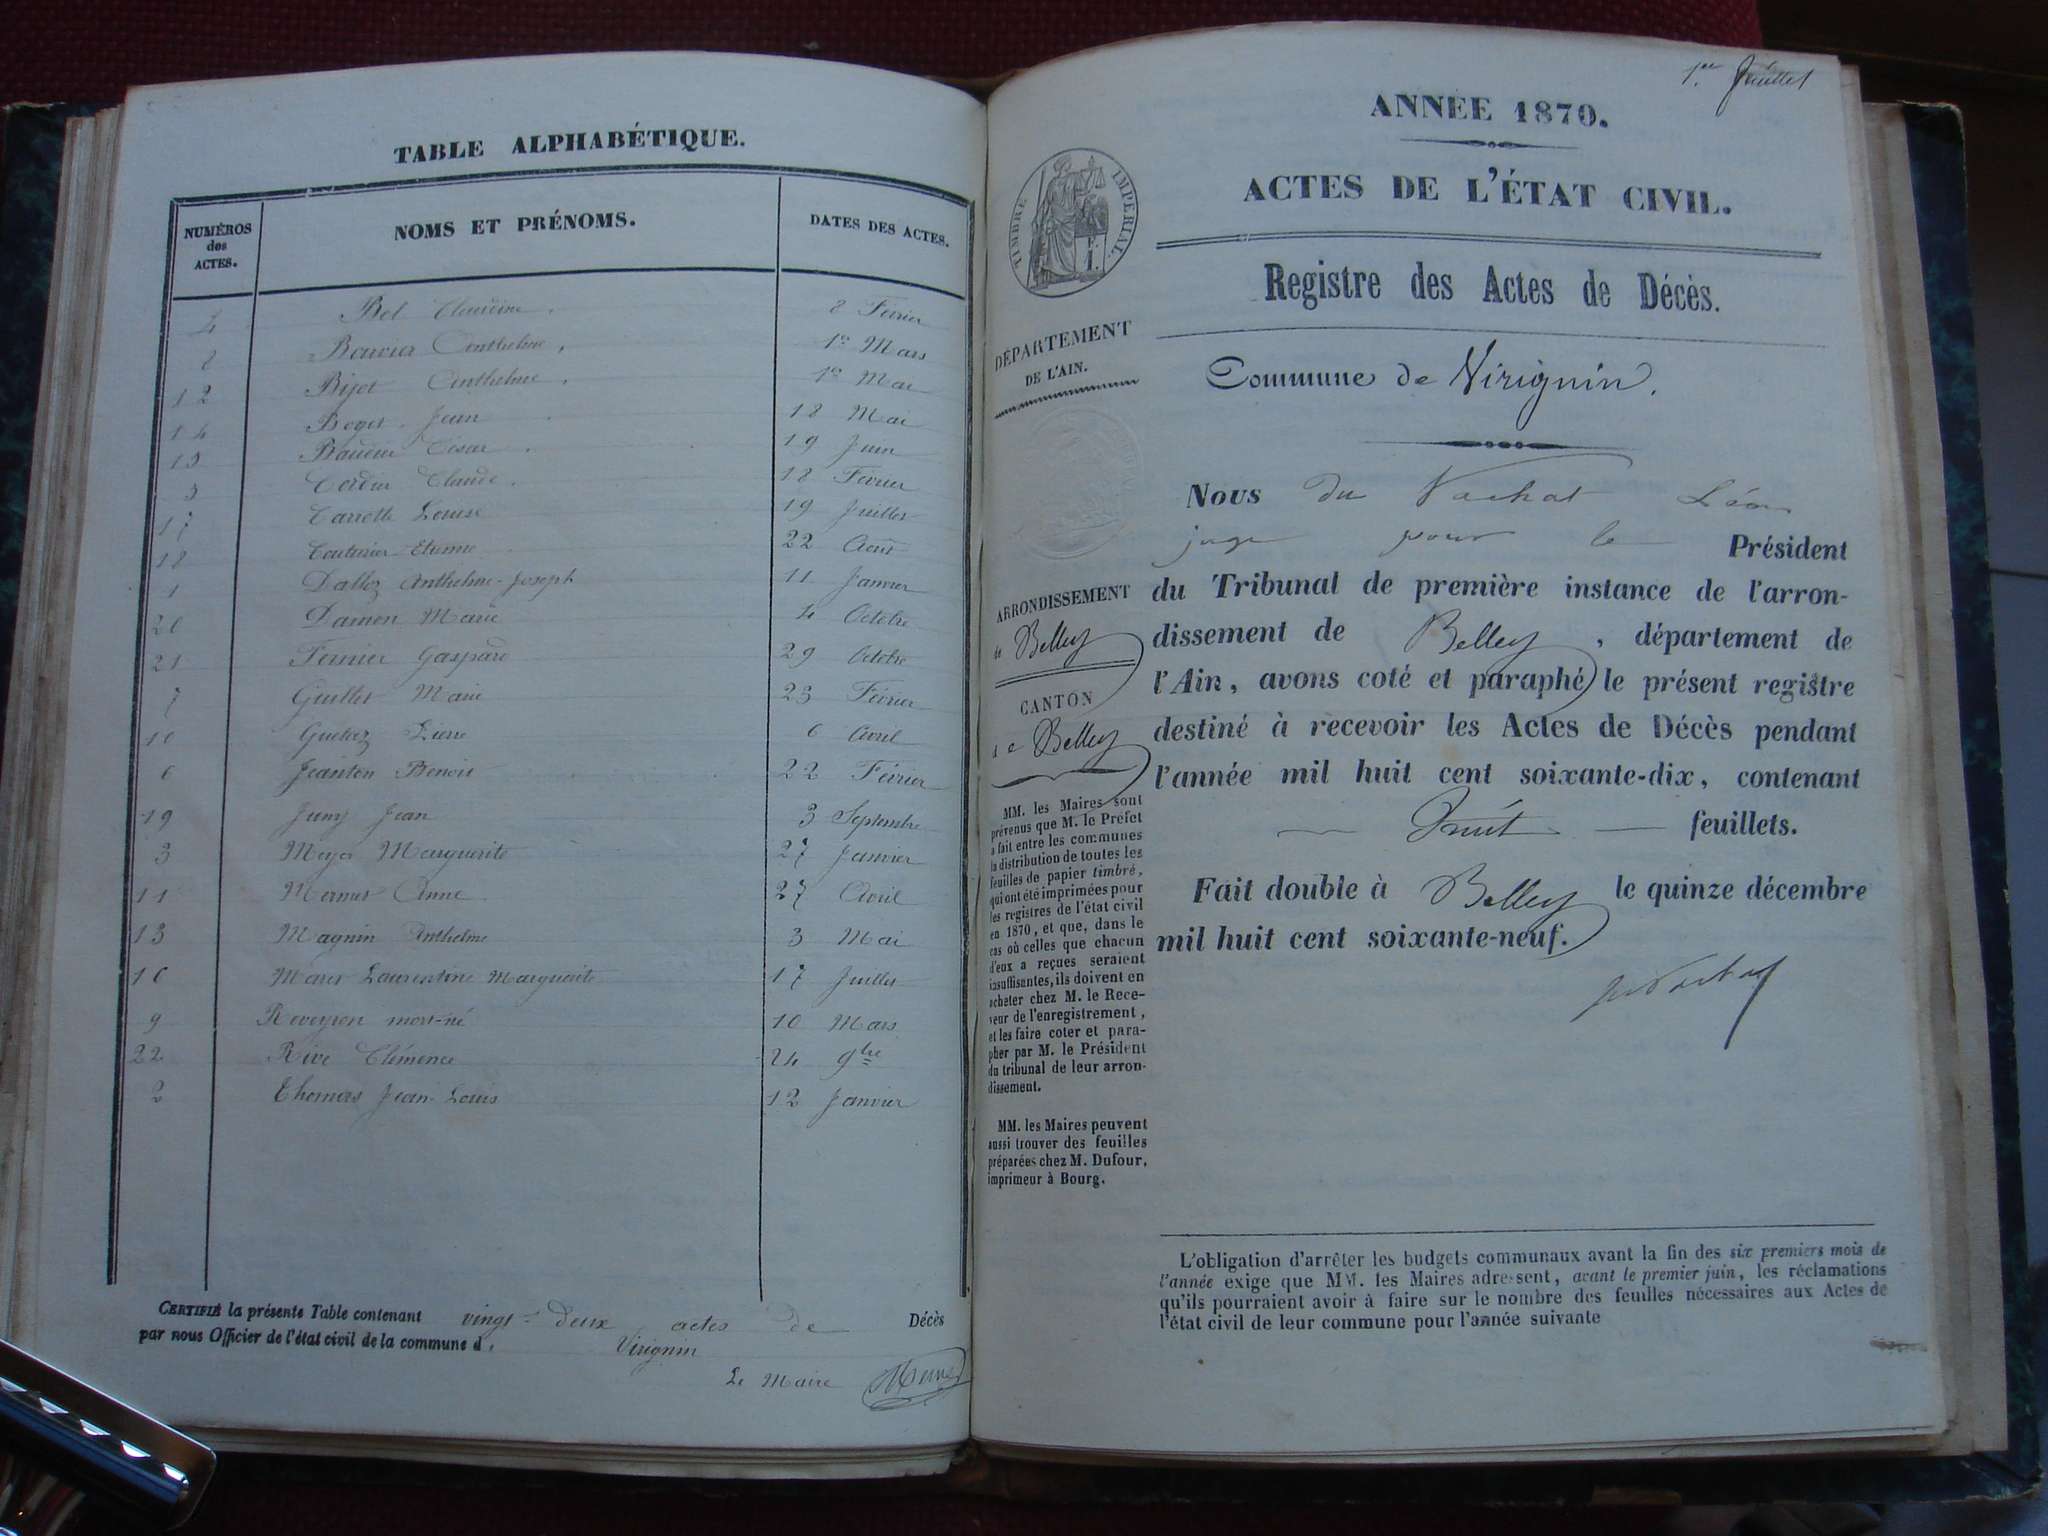 TABLE ALPHABÉTIQUE.
NUMÉROS des ACTES. NOMS ET PRÉNOMS. DATES DES ACTES.
4 Bel Claudine. 8 Février
8 Bouvier Anthelme. 1er Mars
12 Bijot Anthelme. 1er Mai
14 Boget Jean 18 Mai
15 César 19 Juin
5 Claude. 18 Février
17 Louise 19 Juillet
18 Couturier Etienne 22 Août
1 Dalloz Anthelme-Joseph 11 Janvier
20 Damon Marie 4 Octobre
21 Gaspard 29 Octobre
7 Guillet Marie 23 Février
10 Pierre 6 Avril
6 Jeanton Benoit 22 Février
19 Jean 3 Septembre
3 Marguerite 27 Janvier
11 Anne 27 Avril
13 Magnin Anthelme 3 Mai
16 Laurentine Marguerite 17 Juillet
9 Reveyron mort-né 10 Mars
22 Rive Clémence 24 9bre
2 Thomas Jean-Louis 12 Janvier
CERTIFIÉ la présente Table contenant vingt-deux actes de Décès
par nous Officier de l'état civil de la commune d. Virignin
Le Maire
1er feuillet
ANNÉE 1870.
ACTES DE L'ÉTAT CIVIL.
TIMBRE IMPÉRIAL.
Registre des Actes de Décès.
DÉPARTEMENT
DE L'AIN.
Commune de Virignin.
Nous du Vachat Léon
juge pour le Président
du Tribunal de première instance de l'arron-
dissement de Belley, département de
l'Ain, avons coté et paraphé le présent registre
destiné à recevoir les Actes de Décès pendant
l'année mil huit cent soixante-dix, contenant
huit feuillets.
Fait double à Belley le quinze décembre
mil huit cent soixante-neuf.
du Vachat
ARRONDISSEMENT
de Belley
CANTON
de Belley
MM. les Maires sont
prévenus que M. le Préfet
a fait entre les communes
la distribution de toutes les
feuilles de papier timbré,
qui ont été imprimées pour
les registres de l'état civil
en 1870, et que, dans le
cas où celles que chacun
d'eux a reçues seraient
insuffisantes, ils doivent en
acheter chez M. le Rece-
veur de l'enregistrement,
et les faire coter et para-
pher par M. le Président
du tribunal de leur arron-
dissement.
MM. les Maires peuvent
aussi trouver des feuilles
préparées chez M. Dufour,
imprimeur à Bourg.
L'obligation d'arrêter les budgets communaux avant la fin des six premiers mois de
l'année exige que MM. les Maires adressent, avant le premier juin, les réclamations
qu'ils pourraient avoir à faire sur le nombre des feuilles nécessaires aux Actes de
l'état civil de leur commune pour l'année suivante